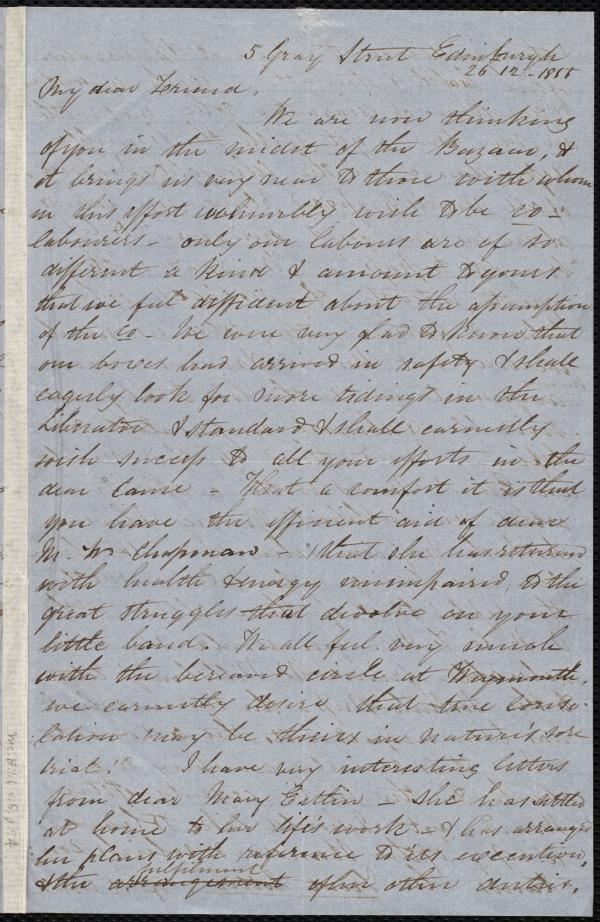 5 Gray Street Edinburgh
26 12 - 1855
My dear Friend,
We are now thinking
of you in the midst of the Bazaar, &
it brings us very near to those with whom
in this effort we humbly wish to be co-
labourers - only our labours are of so
different a kind & amount to yours
that we feel diffident about the assumption
of the co - We were very glad to know that
our boxes had arrived in safety & shall
eagerly look for more tidings in the
Liberator & Standard & shall earnestly
wish success to all your efforts in the
dear Cause - What a comfort it is that
you have the efficient aid of dear
M. W. Chapman - that she has returned
with health & energy unimpaired, to the
great struggles that devolve on your
little band. We all feel very much
with the bereaved circle at Weymouth,
we earnestly desire that true conso-
lation may be theirs in nature's sore
trial. I have very interesting letters
from dear Mary Estlin - she has settled
at home to her life's work - & has arranged
her plans with reference to its execution,
fulfilment
& the arrangement of her other duties.